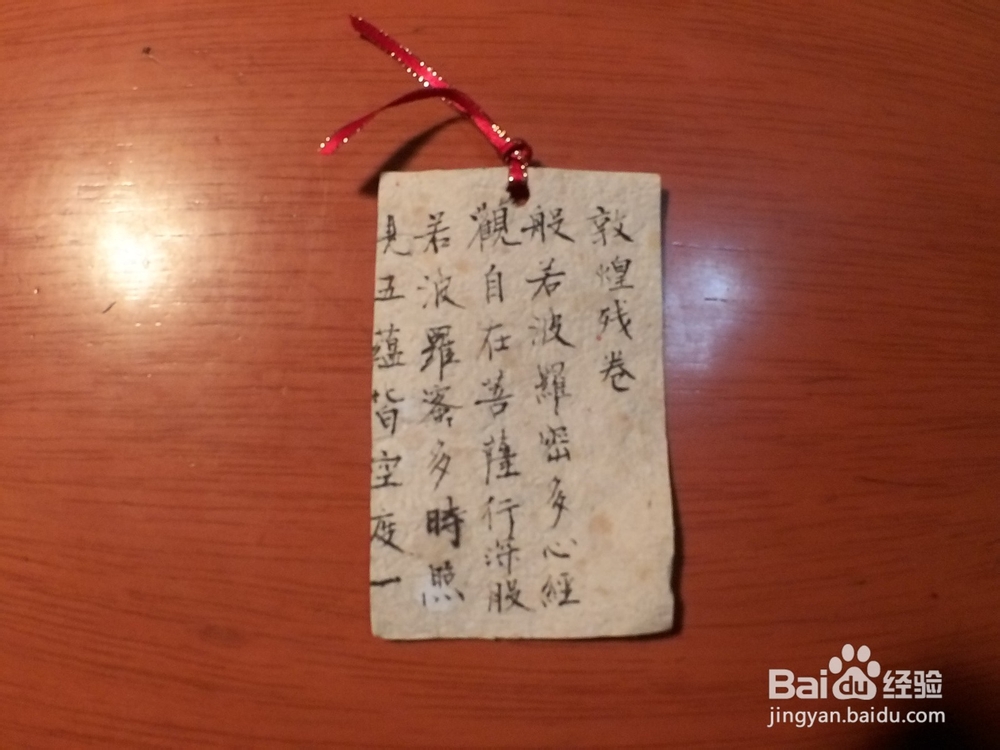 敦煌残卷
般若波羅密多心經
觀自在菩薩行深般
若波羅蜜多時照
見五蘊皆空度一
Baidu经验
jingyan.baidu.com